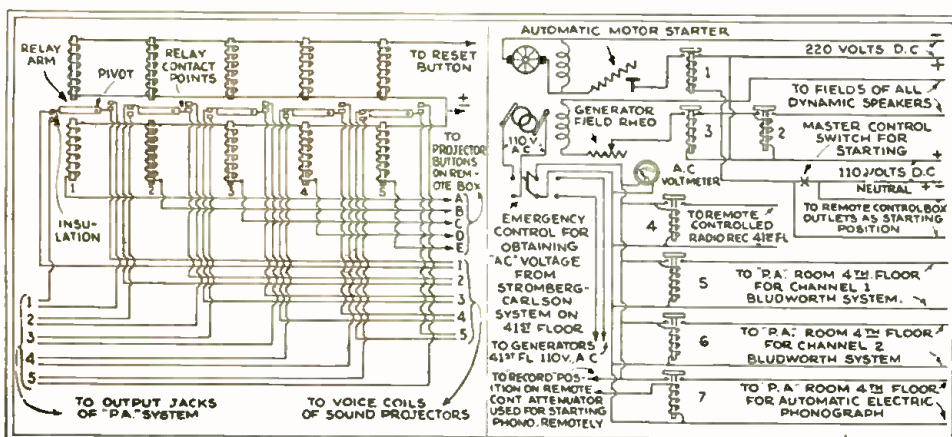 RELAY
ARM
PIVOT
RELAY
CONTACT
POINTS
TO RESET
BUTTON
+
−
TO
PROJECTOR
BUTTONS
ON REM-
OTE BOX
1
2
3
4
5
A
B
C
D
E
INSU-
LATION
1
2
3
4
5
1
2
3
4
5
TO OUTPUT JACKS
OF "P.A." SYSTEM
TO VOICE COILS
OF SOUND PROJECTORS
AUTOMATIC MOTOR STARTER
−
220 VOLTS D.C
+
1
TO FIELDS OF ALL
DYNAMIC SPEAKERS
GENERATOR
FIELD RHEO
110 V.
A C
3
2
MASTER CONTROL
SWITCH FOR
STARTING
A.C
VOLTMETER
−
110 VOLTS D.C
+
NEUTRAL
−
+
TO REMOTE CONTROL BOX
OUTLETS AS STARTING
POSITION
EMERGENCY
CONTROL FOR
OBTAINING
"AC" VOLTAGE
FROM
STROMBERG-
CARLSON
SYSTEM ON
41ST FLOOR
4
TO REMOTE
CONTROLLED
RADIO REC 41ST FL
5
TO "P.A." ROOM 4TH FLOOR
FOR CHANNEL 1
BLUDWORTH SYSTEM.
6
TO "P.A." ROOM 4TH FLOOR
FOR CHANNEL 2
BLUDWORTH SYSTEM
TO GENERATORS
41ST FL 110 V. A C
TO "RECORD" POS-
ITION ON REMOTE
CONT ATTENUATOR
USED FOR STARTING
PHONO. REMOTELY
7
TO "P.A." ROOM 4TH FLOOR
FOR AUTOMATIC ELECTRIC
PHONOGRAPH